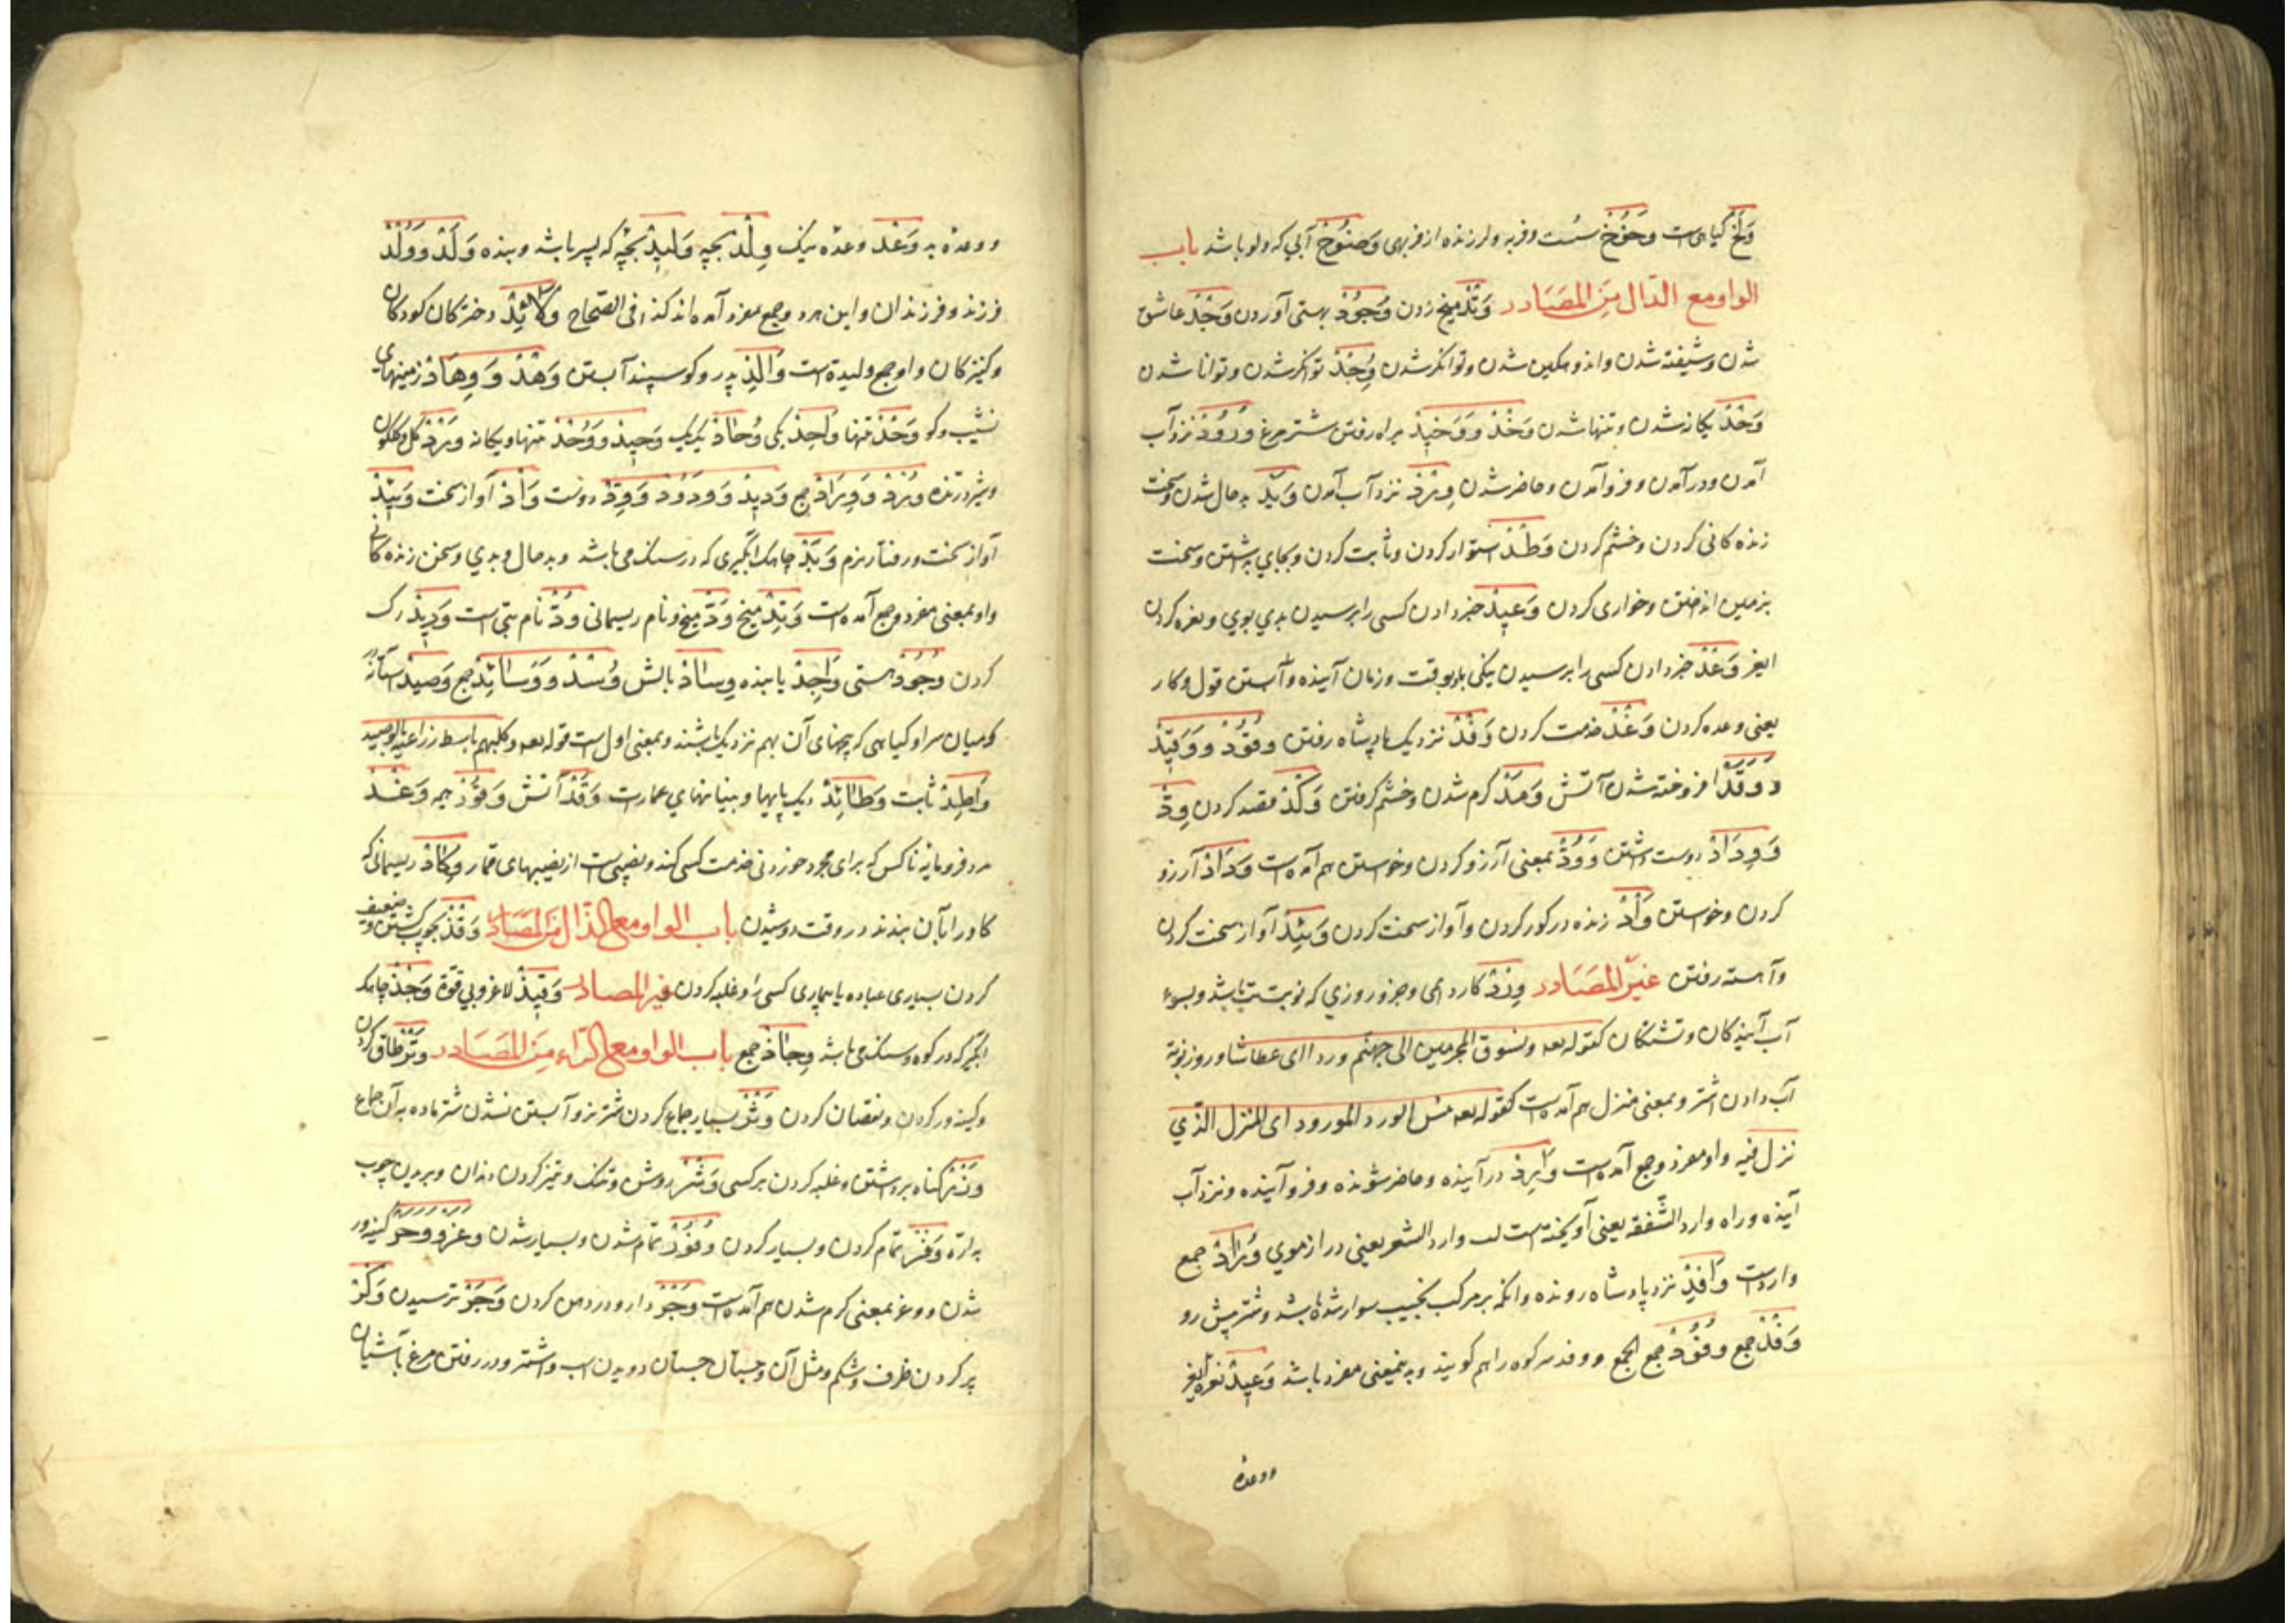 وَلَخْ گیاهی است وَخْوَخْ سست و فربه و لرزنده از فربهی وَضُوْخْ آبی که در دلو باشد باب
الواو مع الدال مِنَ المصَادر وَتْدْ میخ زدن وُجُوْدْ بهستی آوردن وَجْدْ عاشق
شدن و شیفته شدن و اندوهگین شدن و توانگر شدن وُجْدْ توانگر شدن و توانا شدن
وَحْدْ یگانه شدن و تنها شدن وَخْدْ وَ وَخِیْدْ براه رفتن شتر مرغ وُرُوْدْ نزد آب
آمدن و در آمدن و فرو آمدن و حاضر شدن وِرْدْ نزد آب آمدن وَبَدْ بد حال شدن و سخت
زنده کانی کردن و خشم کردن وَطْدْ استوار کردن و ثابت کردن و بجای داشتن و سخت
بزمین انداختن و خواری کردن وَعِیْدْ خبر دادن کسی را برسیدن بدی بوی و نعره کردن
وَعْدْ خبر دادن کسی را برسیدن نیکی باو بوقت و زمان آینده قول و کار
یعنی وعده کردن وَغْدْ خدمت کردن وَفْدْ نزدیک پادشاه رفتن وُقُوْدْ وَ وَقِیْدْ
وَ وَقَدْ افروخته شدن آتش وَمَدْ گرم شدن و خشم گرفتن وَکْدْ قصد کردن وِدّْ
وَ وِدَادْ دوست داشتن وَ وُدّْ بمعنی آرزو کردن و خواستن هم آمده است وَدَادْ آرزو
کردن و خواستن وَأْدْ زنده در گور کردن و آواز سخت کردن وَئِیْدْ آواز سخت کردن
و آهسته رفتن غیر المصَادر وِرْدْ کاردایمی و جزو روزی که نوبت تب باشد و بسوء
آب آیندکان و تشنگان کقوله تعه ونسوق المجرمین الی جهنم وردا ای عطاشا و روز نوبة
آب دادن اشتر و بمعنی منزل هم آمده است کقوله تعه بئس الورد المورود ای المنزل الذی
نزل فیه و او مفرد و جمع آمده است وَارِدْ در آینده و حاضر شونده و فرو آینده و نزد آب
آینده و راه وارد الشفقه یعنی آویخته است لب وارد الشعر یعنی دراز موی وُرَّادْ جمع
وارد است وَافِدْ نزد پادشاه رونده و آنکه بر مرکب نجیب سوار شده باشد و شتر پیش رو
وَفْدْ جمع وُفُوْدْ جمع الجمع و وفد سر کوه را هم گویند و باینمعنی مفرد باشد وَعِیْدْ نعره
ووعده
ووعده بد وَعْدْ وعده نیک وِلْدْ بچه وَلِیْدْ بچه که پسر باشد و بنده وَلَدْ وَ وُلْدْ
فرزند و فرزندان و این هر دو جمع مفرد آمده اند کذا فی الصحاح وَلَائِدْ دختر کان کودکان
و کنیز کان و او جمع ولیدة است وَالِدْ پدر و کوسپند آبستن وَهْدْ وَ وِهَادْ زمینهای
نشیب و کو وَحْدْ تنها وَاحِدْ یکی وُحَادْ یک یک وَحِیْدْ وَ وَحْدْ تنها و یگانه وَرْدْ گل و گلگون
و شیر درنده وُرْدْ وَ وِرَادْ جمع وَدِیْدْ وَ وَدُوْدْ وَ وِدّْ دوست وَأْدْ آواز سخت وَئِیْدْ
آواز سخت و رفتار نرم وَبْدْ چاهک آبگیری که در سنگ می باشد و بد حال و بدی و سختی زنده کانی
و او بمعنی مفرد و جمع آمده است وَتِدْ میخ وَدّْ میخ و نام ریسمانی وُدّْ نام بتی است وَرِیْدْ رگ
کردن وُجُوْدْ هستی وَاجِدْ یابنده وِسَادْ بالش وُسْدْ وَ وَسَائِدْ جمع وَصِیْدْ آستانه
و میان سرا و گیاهی که بیخهای آن بهم نزدیک باشند و بمعنی اول است قوله تعه وکلبهم باسط ذراعیه بالوصید
وَاطِدْ ثابت وَطَائِدْ دیک پایها و بنیانهای عمارت وَقْدْ آتش وَقُوْدْ هیمه وَغْدْ
مرد فرومایه ناکس که برای مجرد خوردنی خدمت کسی کند و نصیبی است از نصیبهای قمار وِکَادْ ریسمانی که
کاو را بآن بندند در وقت دوشیدن باب الواو مع الذال مِنَ المصَادر وَقْذْ بچوب کشتن و ضعیف
کردن بسیاری عباده یا بیماری کسی را و غلبه کردن غیر المصادر وَقِیْذْ لاغر و بی قوة وَجْذْ چاهک
آبگیر که در کوه و سنگ می باشد وِجَاذْ جمع باب الواو مع الراء مِنَ المصَادر وَتْرْ طاق کردن
و کینه ور کردن و نقصان کردن وَثْرْ بسیار جماع کردن شتر نر و آبستن نشدن شتر ماده بآن جماع
وِزْرْ گناه برداشتن و غلبه کردن بر کسی وَشْرْ روشن و تنک و تیز کردن دندان و بریدن چوب
به اره وَفْرْ تمام کردن و بسیار کردن وُفُوْرْ تمام شدن و بسیار شدن وَغَرْ وَ وَحَرْ کینه ور
شدن و وغر بمعنی گرم شدن هم آمده است وَجْرْ دارو در دهن کردن وَجَرْ ترسیدن وَکْرْ
پر کردن ظرف و شکم و مثل آن و جستان جستان دویدن اسب و اشتر و در رفتن مرغ بآشیان